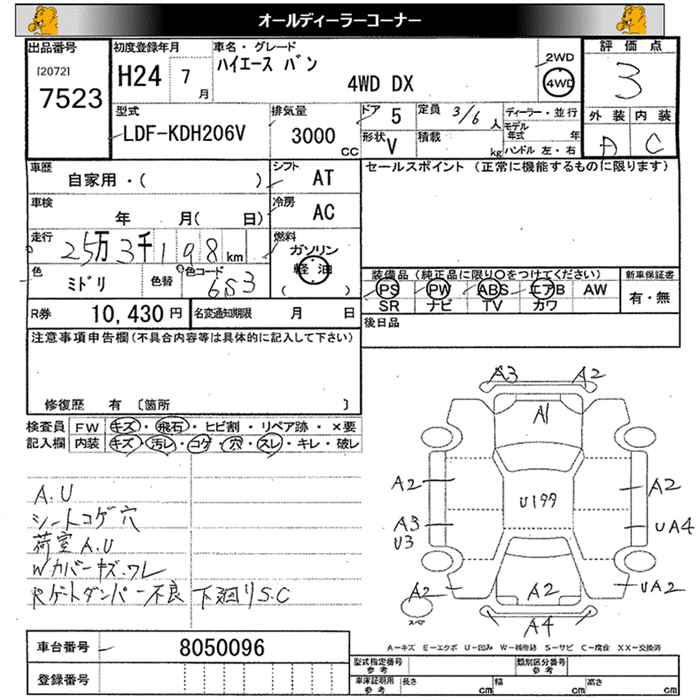 オールディーラーコーナー
出品番号
[2072]
7523
初度登録年月
H24 7 月
車名・グレード
ハイエース バン
4WD DX
2WD
4WD
評価点
3
外装 内装
A C
型式
LDF-KDH206V
排気量
3000 CC
ドア 5
定員 3/6 人
ディーラー・並行
形状 V
積載 kg
モデル年式 年
ハンドル 左・右
車歴
自家用・( )
シフト AT
車検
年 月( 日)
冷房 AC
走行
25万3千198 km
燃料
ガソリン
軽油
( )
色
ミドリ
色替
色コード
6S3
R券 10,430 円
名変通知期限 月 日
セールスポイント (正常に機能するものに限ります)
装備品 (純正品に限り〇をつけてください)
PS PW ABS エアB AW
SR ナビ TV カワ
新車保証書
有・無
後日品
注意事項申告欄(不具合内容は具体的に記入して下さい)
修復歴 有 〔箇所 〕
検査員記入欄
FW キズ・飛石・ヒビ割・リペア跡・×要
内装 キズ・汚レ・コゲ・穴・スレ・キレ・破レ
A.U
シートコゲ穴
荷室A.U
Wカバーキズ.ワレ
Rゲートダンパー不良 下廻りS.C
A3 A2
A1
A2 A2
U199
A3 UA4
U3
A2 A2 UA2
A4
スペア
A-キズ E-エクボ U-凹み W-補修跡 S-サビ C-腐食 XX-交換済
車台番号 8050096
登録番号
型式指定番号 参考
類別区分番号 参考
車庫証明用 参考
長さ cm 幅 cm 高さ cm